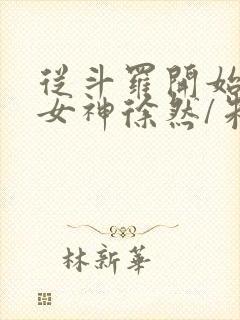 從斗羅開始
女神徐然/朱
林新華